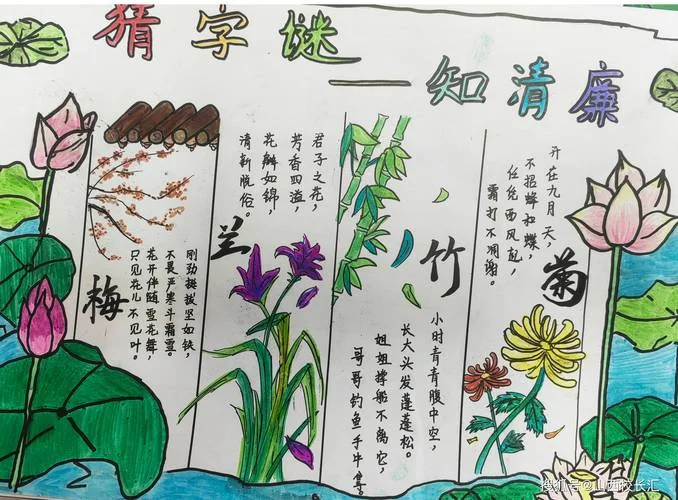 猜字谜
——知清廉
梅
刚劲挺拔坚如铁，
不畏严寒斗霜雪。
花开伴随雪花舞，
只见花儿不见叶。
兰
君子之花，
芳香四溢，
花瓣如锦，
清新脱俗。
竹
小时青青腹中空，
长大头发蓬蓬松。
姐姐撑船不离它，
哥哥钓鱼手
菊
开在九月天，
不招蜂和蝶，
任凭西风起，
霜打不凋谢。
搜狐号@山西校长汇